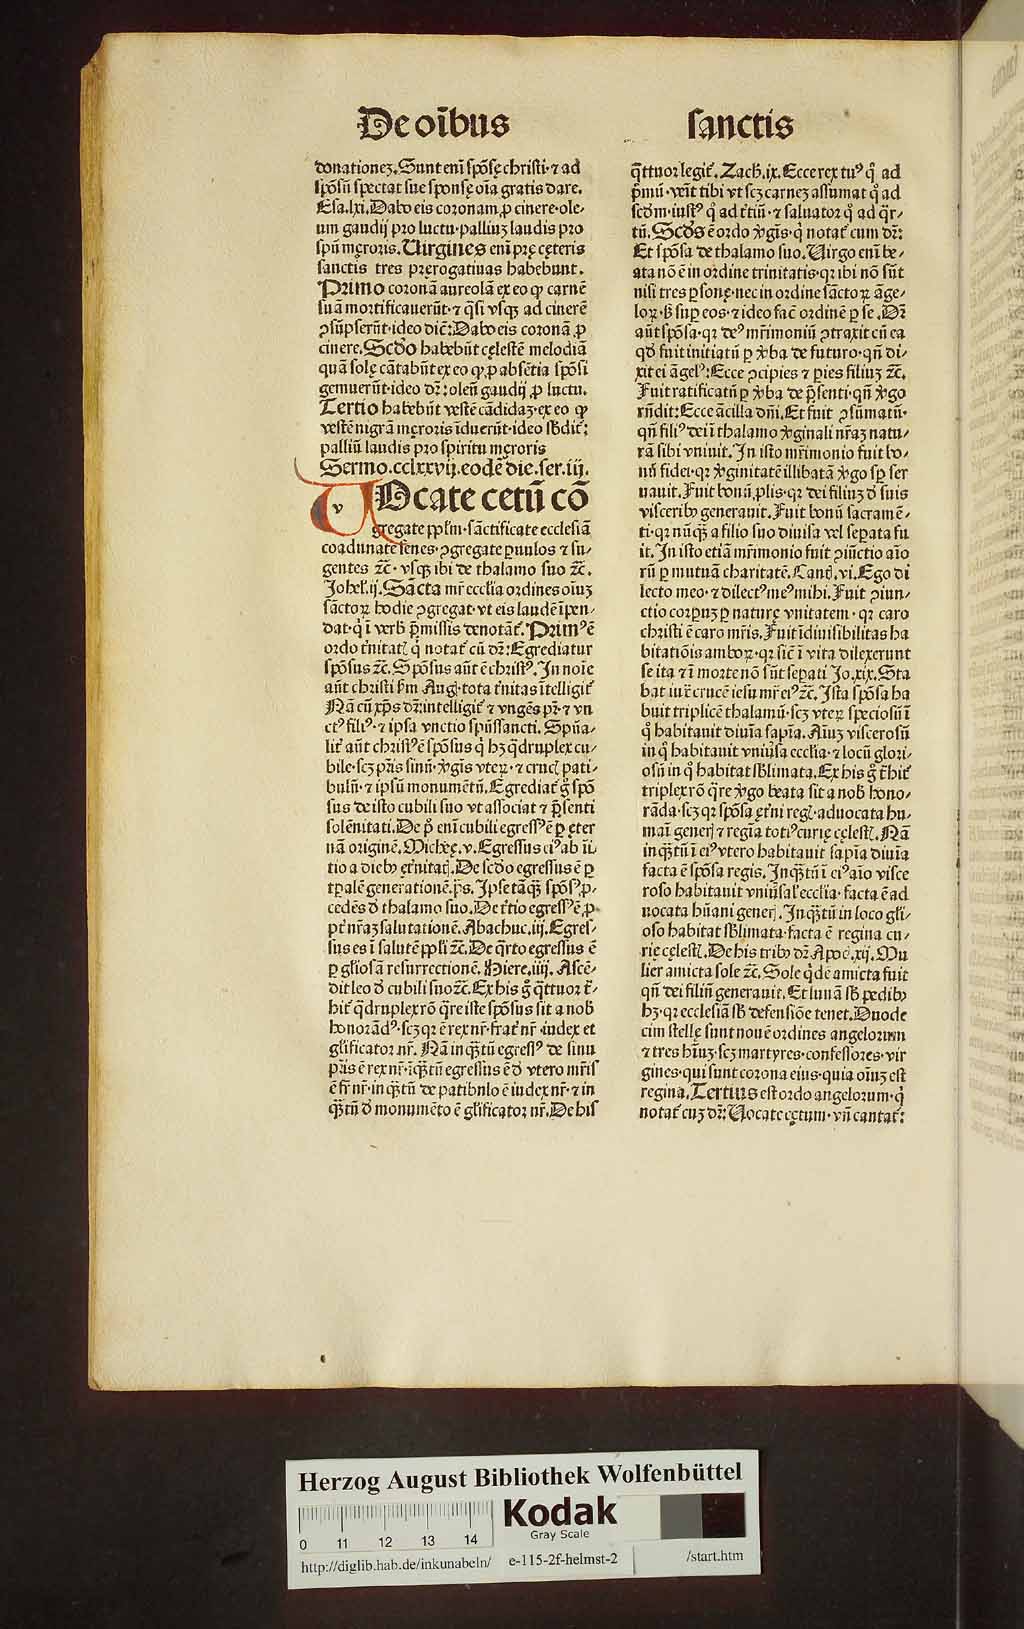 De oībus sanctis
donationeʒ. Sunt eni̅ spo̅sę christi· ⁊ ad
spo̅su̅ spectat sue sponsę oi̅a gratis dare.
Esa.lxi. Dabo eis coronam, ꝓ cinere· ole-
um gaudij pro luctu· palliuʒ laudis pro
spu̅ męroris. Uirgines eni̅ prę cęteris
sanctis tres pręrogatiuas habebunt.
Primo corona̅ aureola̅ ex eo ꝙ carne̅
sua̅ mortificaueru̅t· ⁊ q̅si vsqꝫ ad cinere̅
ꝯsu̅pseru̅t· ideo dic̅: Dabo eis corona̅ ꝓ
cinere. Scd̅o habebu̅t cęleste̅ melodia̅
qua̅ solę ca̅tabu̅t ex eo ꝙ, ꝓ abse̅tia spo̅si
gemueru̅t· ideo dr̅: oleu̅ gaudij ꝓ luctu.
Tertio habebu̅t veste̅ ca̅didaʒ· ex eo ꝙ
veste̅ nigra̅ męroris i̅dueru̅t· ideo sb̅dit̅:
palliu̅ laudis pro spiritu męroris
Sermo.cclxxvij. eode̅ die. ser.iij.
v
Ocate cetu̅ co̅
gregate ppl̅m· sa̅ctificate ecclesia̅
coadunate senes· ꝯgregate ꝑuulos ⁊ su-
gentes ⁊c̅· vsqꝫ ibi de thalamo suo ⁊c̅.
Johel̅.ij. Sa̅cta mr̅ ecclia ordines oi̅uʒ
sa̅ctoꝝ hodie ꝯgregat· vt eis laude̅ i̅pen-
dat· q̇ i̅ verb̅ p̅missis denota̅t̅. Primꝰ e̅
ordo tr̅nitat̅ q̇ notat̅ cu̅ dr̅: Egrediatur
spo̅sus ⁊c̅. Spo̅sus au̅t e̅ christꝰ. In noi̅e
au̅t christi ẜm Aug̅. tota tr̅nitas i̅telligit̅
Na̅ cu̅ xp̅s dr̅: intelligit̅ ⁊ vnge̅s pr̅· ⁊ vn
ctꝰ filiꝰ· ⁊ ipsa vnctio spu̅ssancti. Spu̅a-
lit̅ au̅t christꝰ e̅ spo̅sus q̇ hʒ q̅druplex cu-
bile· scʒ pr̅is sinu̅· v̇gi̅s vteꝝ· ⁊ cruc̅ pati-
bulu̅· ⁊ ipsu̅ monume̅tu̅. Egrediat̅ g̊ spo̅
sus de isto cubili suo vt associat̅ ⁊ p̅senti
sole̅nitati. De p̊ eni̅ cubili egressꝰ e̅ ꝑ ęter
na̅ origine̅. Michęę.v. Egressus eiꝰ ab i̅i-
tio a dieb̅ ęt̅nitat̅. De scd̅o egressus e̅ ꝑ
tꝑale̅ generatione̅. p̅s. Ipse ta̅qꝫ spo̅sꝰ ꝓ-
cede̅s d̅ thalamo suo. De t̅tio egressꝰ e̅ ꝓ-
pt̅ nr̅aʒ salutatione̅. Abachuc.iij. Egres-
sus es i̅ salute̅ ppl̅i ⁊c̅. De q̅rto egressus e̅
ꝑ gl̅iosa̅ resurrectione̅. Hiere.iiij. Asce̅-
dit leo d̅ cubili suo ⁊c̅. Ex his g̊ q̅ttuor t̅-
hit̅ q̅druplex ro̅ q̅re iste spo̅sus sit a nob̅
honora̅dꝰ· scʒ qꝛ e̅ rex nr̅· frat̅ nr̅· iudex et
gl̅ificator nr̅. Na̅ inq̅tu̅ egressꝰ de sinu
pr̅is e̅ rex nr̅· i̅q̅tu̅ egressus e̅ d̅ vtero mr̅is
e̅ fr̅ nr̅· in q̅tu̅ de patibulo e̅ iudex nr̅· ⁊ in
q̅tu̅ d̅ monume̅to e̅ gl̅ificator nr̅. De his
q̅ttuor legit̅. Zach̅.ix. Ecce rex tuꝰ q̊ ad
p̅mu̅· ve̅it tibi vt scʒ carneʒ assumat q̊ ad
scd̅m· iustꝰ q̊ ad t̅tiu̅· ⁊ saluator q̊ ad q̅r-
tu̅. Scd̅s e̅ ordo v̇gi̅s· q̇ notat̅ cum dr̅:
Et spo̅sa de thalamo suo. Uirgo eni̅ be-
ata no̅ e̅ in ordine trinitatis· qꝛ ibi no̅ su̅t
nisi tres ꝑsonę· nec in ordine sa̅ctoꝝ a̅ge-
loꝝ· ß suꝑ eos· ⁊ ideo fac̅ ordine̅ ꝑ se. Dr̅
au̅t spo̅sa· qꝛ deꝰ mr̅imoniu̅ ꝯtraxit cu̅ ea
qd̅ fuit initiatu̅ ꝑ v̇ba de futuro· qn̅ di-
xit ei a̅gelꝰ: Ecce ꝯcipies ⁊ ꝑies filiuʒ ⁊c̅.
Fuit ratificatu̅ ꝑ v̇ba de p̅senti· qn̅ v̇go
rn̅dit: Ecce a̅cilla dn̅i. Et fuit ꝯsu̅matu̅·
qn̅ filiꝰ dei i̅ thalamo v̇ginali nr̅aʒ natu-
ra̅ sibi vniuit. In isto mr̅imonio fuit bo-
nu̅ fidei· qꝛ v̇ginitate̅ illibata̅ v̇go sꝑ ser
uauit. Fuit bonu̅ ꝓlis· qꝛ dei filiuʒ d̅ suis
viscerib̅ generauit. Fuit bonu̅ sacrame̅-
ti· qꝛ nu̅qꝫ a filio suo diuisa vel seꝑata fu
it. In isto etia̅ mr̅imonio fuit ꝯiu̅ctio ai̅o
ru̅ ꝑ mutua̅ charitate̅. Cant̅.vi. Ego di
lecto meo· ⁊ dilectꝰ meꝰ mihi. Fuit ꝯiun-
ctio corꝑuʒ ꝑ naturę vnitatem· qꝛ caro
christi e̅ caro mr̅is. Fuit i̅diuisibilitas ha
bitatio̅is amboꝝ· qꝛ sic̅ i̅ vita dilexerunt
se ita ⁊ i̅ morte no̅ su̅t seꝑati Jo.xix. Sta
bat iux̅ cruce̅ iesu mr̅ eiꝰ ⁊c̅. Ista spo̅sa ha
buit triplice̅ thalamu̅· scʒ vteꝝ speciosu̅ i̅
q̊ habitauit diui̅a sapi̅a. Ai̅uʒ viscerosu̅
in q̊ habitauit vniu̇sa ecclia· ⁊ locu̅ glori-
osu̅ in q̊ habitat sb̅limata. Ex his g̊ t̅hit̅
triplex ro̅ q̅re v̇go beata sit a nob̅ hono-
ra̅da· scʒ qꝛ spo̅sa ęt̅ni reg̅· aduocata hu-
mai̅ gener̅ ⁊ regi̅a totiꝰ curię cęlest̅. Na̅
in q̅tu̅ i̅ eiꝰ vtero habitauit sapi̅a diui̅a
facta e̅ spo̅sa regis. Inq̅tu̅ i̅ eiꝰ ai̅o visce
roso habitauit vniu̇sal̅ ecclia· facta e̅ ad
uocata hu̅ani gener̅. Inq̅tu̅ in loco gl̅i-
oso habitat sb̅limata· facta e̅ regina cu-
rię cęlest̅. De his trib̅ dr̅ Apoc̅.xij. Mu
lier amicta sole ⁊c̅. Sole q̅de̅ amicta fuit
qn̅ dei filiu̅ generauit. Et luna̅ sb̅ pedib̅
hʒ· qꝛ ecclesia̅ sb̅ defensio̅e tenet. Duode
cim stellę sunt noue̅ ordines angelorum
⁊ tres hi̅uʒ· scʒ martyres· confessores· vir
gines· qui sunt corona eius· quia oi̅uʒ est
regina. Tertius est ordo angelorum· q̇
notat̅ cuʒ dr̅: Uocate cętum· vn̅ cantat̅:
Herzog August Bibliothek Wolfenbüttel
Kodak
Gray Scale
0 11 12 13 14
http://diglib.hab.de/inkunabeln/ e-115-2f-helmst-2 /start.htm